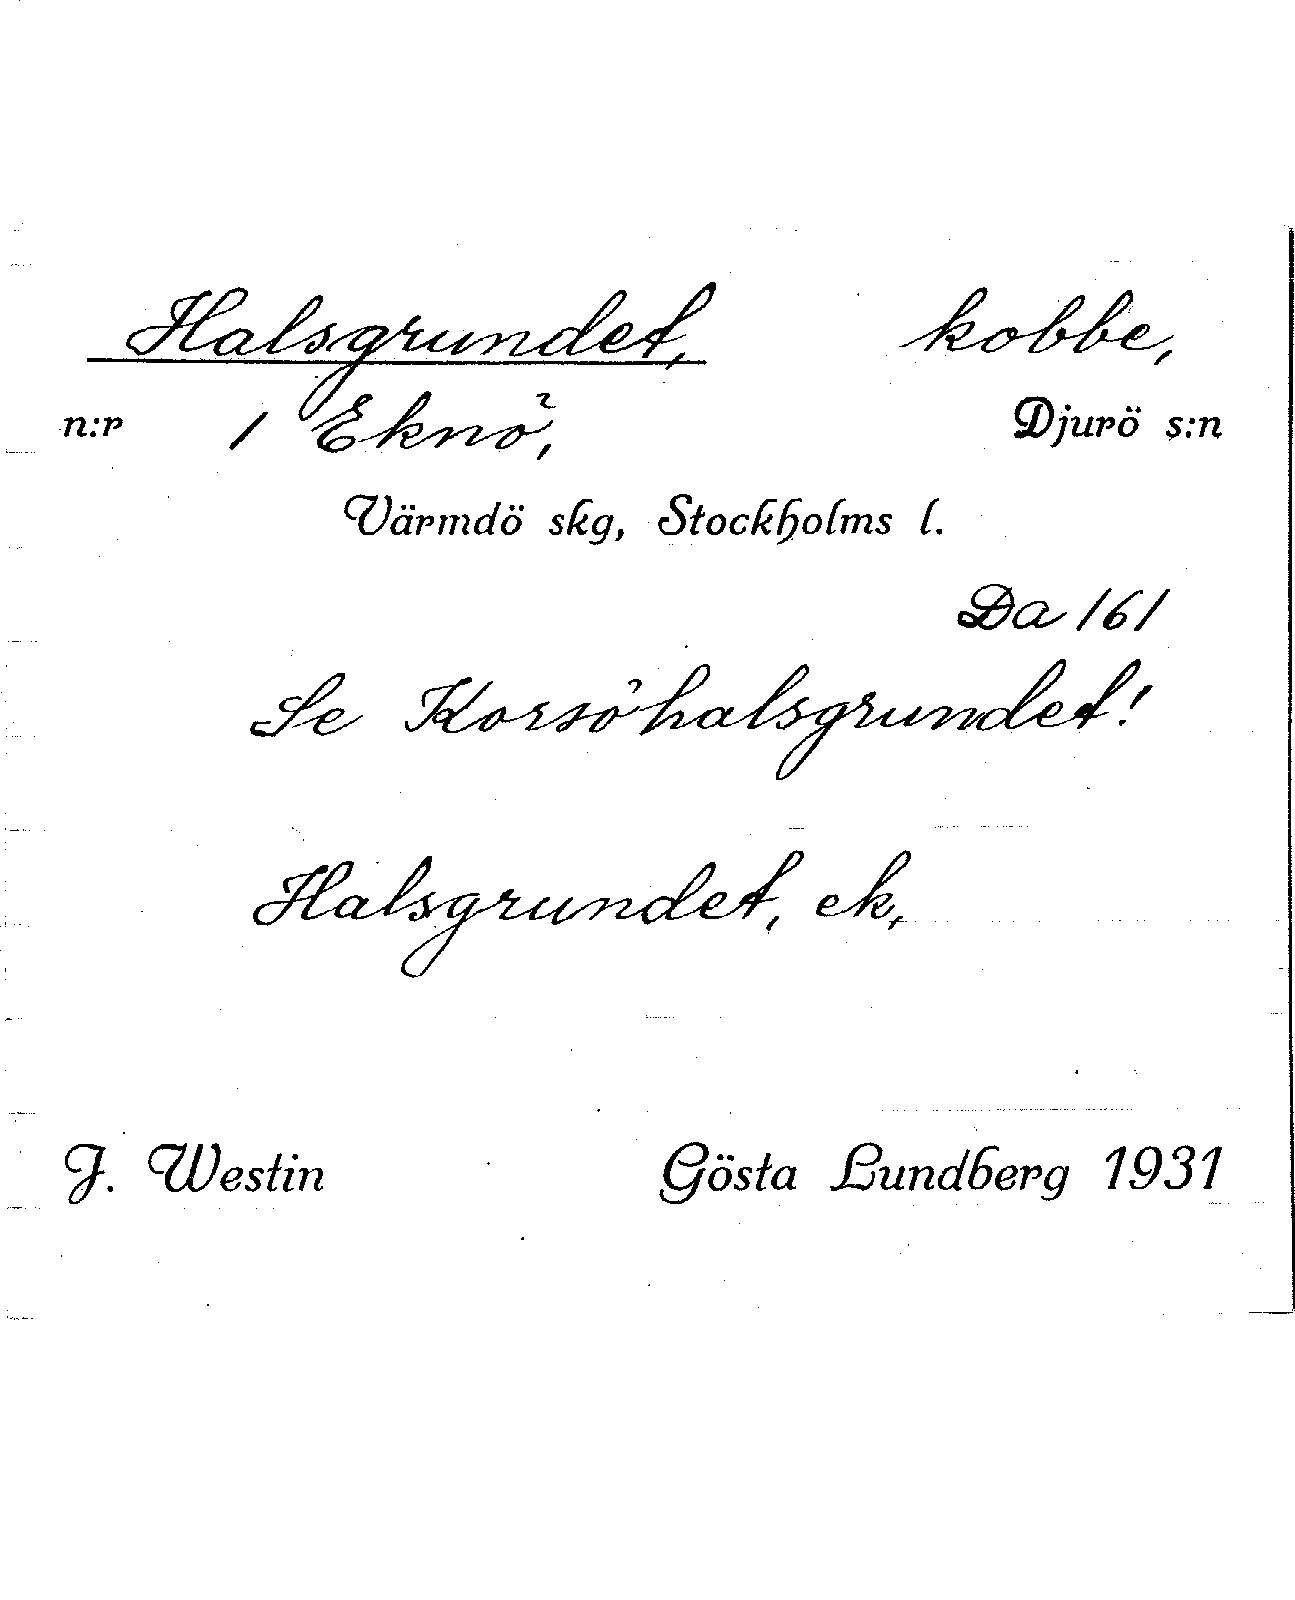 Halsgrundet, kobbe,
n:r 1 Eknö, Djurö s:n
Värmdö skg, Stockholms l.
Da 161
Se Korsöhalsgrundet!
Halsgrundet, ek,
J. Westin Gösta Lundberg 1931